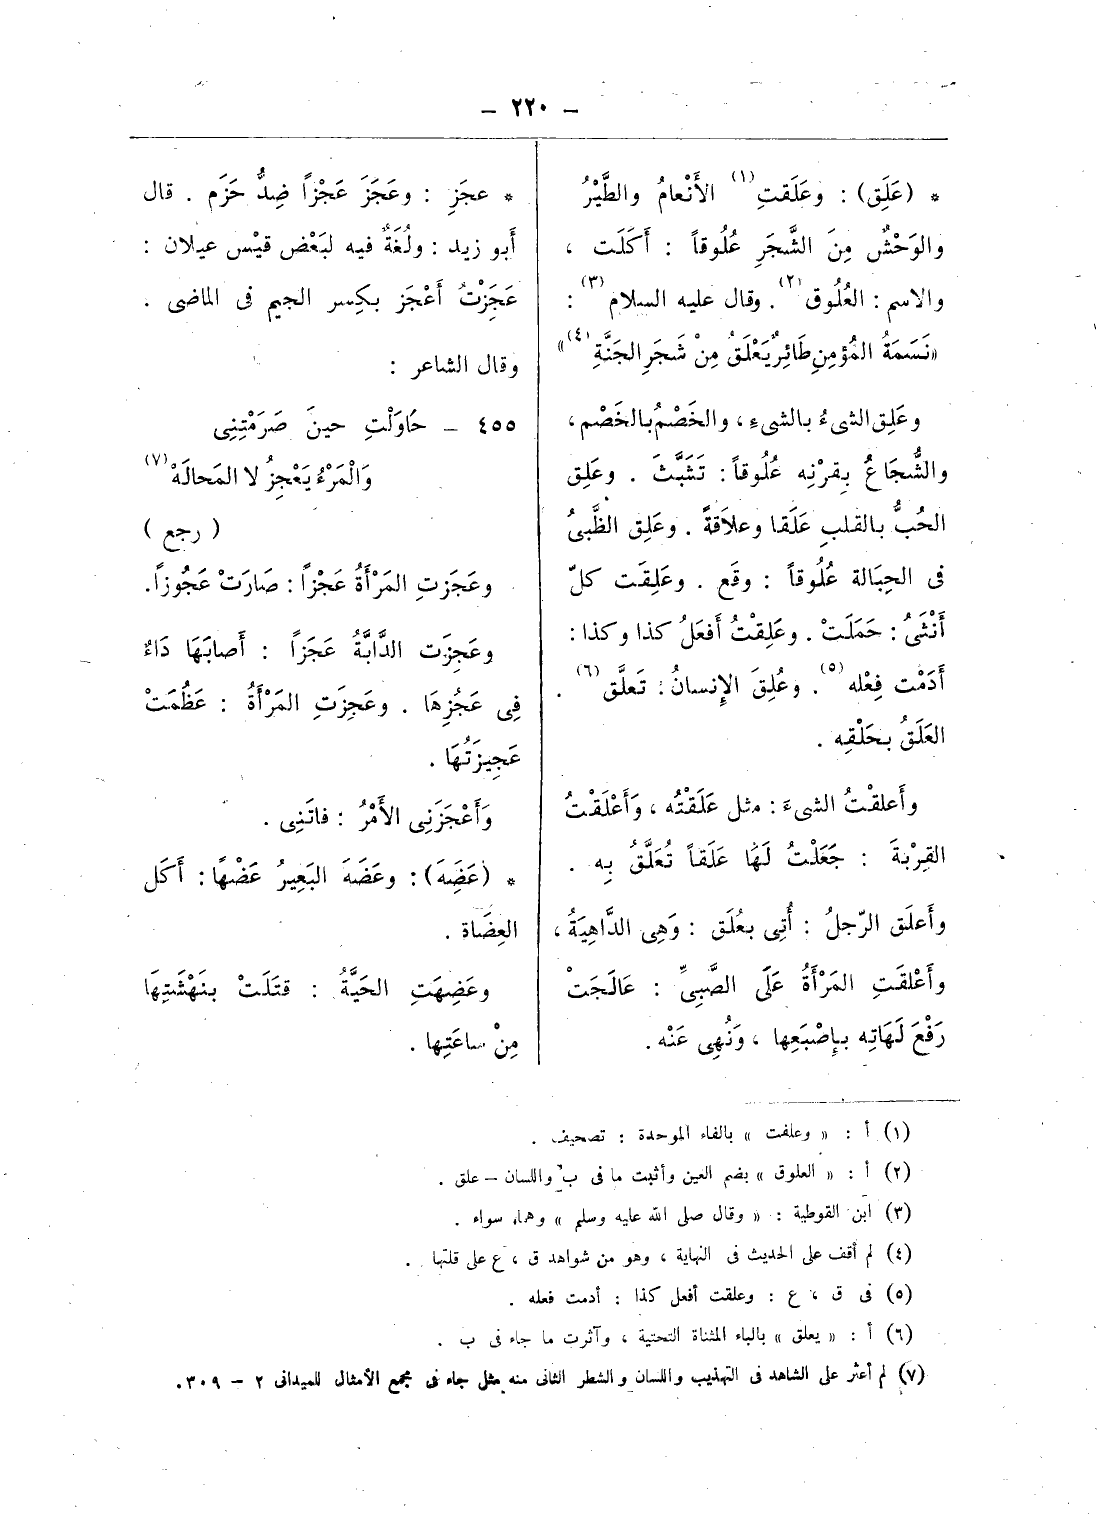 – ٢٢٠ –
* (عَلَق) : وعَلَقتِ(١) الأَنْعامُ والطَّيْرُ
والوَحْشُ مِنَ الشَّجَرِ عُلُوقاً : أَكَلَت ،
والاسم : العُلُوق(٢). وقال عليه السلام(٣) :
«نَسَمَةُ المُؤمِنِ طَائِرٌ يَعْلَقُ مِنْ شَجَرِ الجَنَّةِ(٤)»
وعَلِق الشىءُ بالشىءِ ، والخَصْمُ بالخَصْم ،
والشُّجَاعُ بِقرْنِه عُلُوقاً : تَشَبَّثَ . وعَلِق
الحُبُّ بالقلبِ عَلَقا وعلاَقةً . وعَلِق الظَّبىُ
فى الحِبَالة عُلُوقاً : وقَع . وعَلِقَت كلّ
أَنْثَىُ : حَمَلَتْ . وعَلِقْتُ أَفعَلُ كذا وكذا :
أَدَمْت فِعْله(٥). وعُلِقَ الإِنسانُ : تَعلَّق(٦) .
العَلَقُ بحَلْقِه .
وأَعلقْتُ الشىءَ : مثل عَلَقْتُه ، وَأَعْلَقْتُ
القِرْبةَ : جَعَلْتُ لَهَا عَلَقاً تُعَلَّقُ بِه .
وأَعلَق الرّجلُ : أُتِى بعُلَق : وَهِى الدَّاهِيَةُ ،
وأَعْلقَتِ المَرْأَةُ عَلَى الصَّبِىِّ : عَالَجَتْ
رَفْعَ لَهَاتِه بإِصْبَعِها ، وَنُهِى عَنْه .
* عجَزِ : وعَجَزَ عَجْزاً ضِدُّ حَزَم . قال
أَبو زيد : ولُغَةٌ فيه لبَعْض قيْس عيلان :
عَجَزِْتُ أَعْجَز بكِسر الجيم فى الماضى .
وقال الشاعر :
٤٥٥ – حَاوَلْتِ حينَ صَرَمْتِنِى
وَالْمَرْءُ يَعْجِزُ لا المَحالَهْ(٧)
( رجع )
وعَجَزتِ المَرْأَةُ عَجْزاً : صَارَتْ عَجُوزاً.
وعَجِزَت الدَّابَّةُ عَجَزاً : أَصابَهَا دَاءٌ
فِى عَجُزِهَا . وعَجِزَتِ المَرْأَةُ : عَظُمَتْ
عَجِيزَتُهَا .
وَأَعْجَزَنِى الأَمْرُ : فاتَنِى .
* (عَضِهَ) : وعَضَهَ البَعِيرُ عَضْهاً : أَكَل
العِضَاة .
وعَضِهَتِ الحَيَّةُ : قتَلَتْ بنَهْشَتِهَا
مِنْ ساعَتِها .
(١) أ : « وعلفت » بالفاء الموحدة : تصحيف .
(٢) أ : « العلوق » بضم العين وأثبت ما فى ب واللسان – علق .
(٣) ابن القوطية : « وقال صلى الله عليه وسلم » وهما سواء .
(٤) لم أقف على الحديث فى النهاية ، وهو من شواهد ق ، ع على قلتها .
(٥) فى ق ، ع : وعلقت أفعل كذا : أدمت فعله .
(٦) أ : « يعلق » بالياء المثناة التحتية ، وآثرت ما جاء فى ب .
(٧) لم أعثر على الشاهد فى التهذيب واللسان والشطر الثانى منه مثل جاء فى مجمع الأمثال للميدانى ٢ – ٣٠٩.